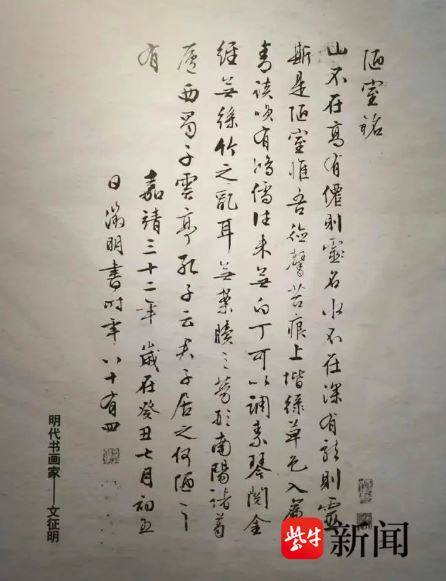 陋室銘
山不在高有僊則靈名水不在深有龍則靈
斯是陋室惟吾德馨苔痕上堦綠草色入簾
青談笑有鴻儒往來無白丁可以調素琴閱金
經無絲竹之亂耳無案牘之勞形南陽諸葛
廬西蜀子雲亭孔子云夫子居之何陋之
有
嘉靖三十二年歲在癸丑七月初五
日徵明書時年八十有四
明代书画家——文征明
紫牛新闻